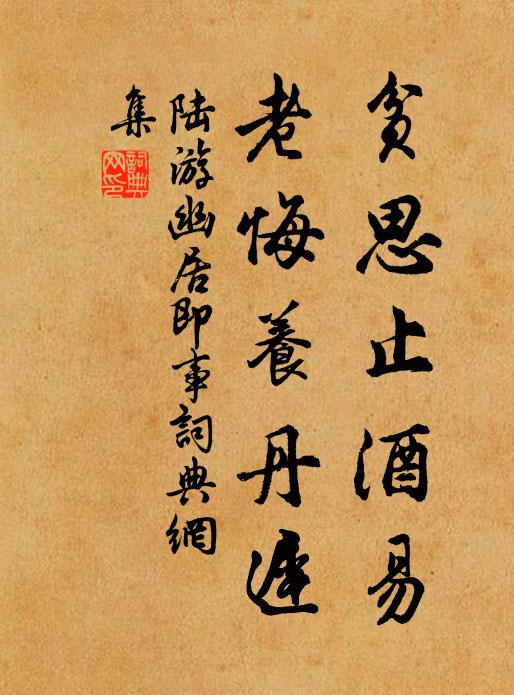 貧思止酒易
老悔養丹遲
陆游幽居即事詞典網
集
詞典網印